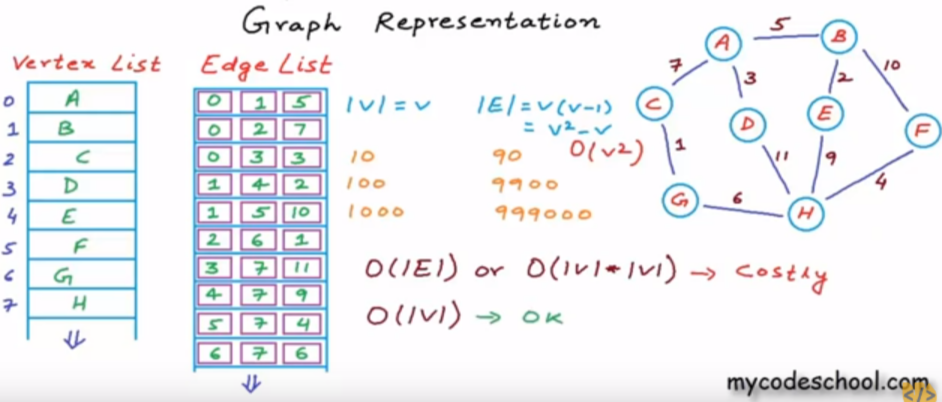 Graph Representation
Vertex List
0 A
1 B
2 C
3 D
4 E
5 F
6 G
7 H
Edge List
0 1 5
0 2 7
0 3 3
1 4 2
1 5 10
2 6 1
3 7 11
4 7 9
5 7 4
6 7 6
|V| = v |E| = v(v-1)
= v²-v
O(v2)
10 90
100 9900
1000 999000
O(|E|) or O(|V|*|V|) → Costly
O(|V|) → OK
A 5 B
7 3 2 10
C D E F
1 11 9 4
G 6 H
mycodeschool.com
</>